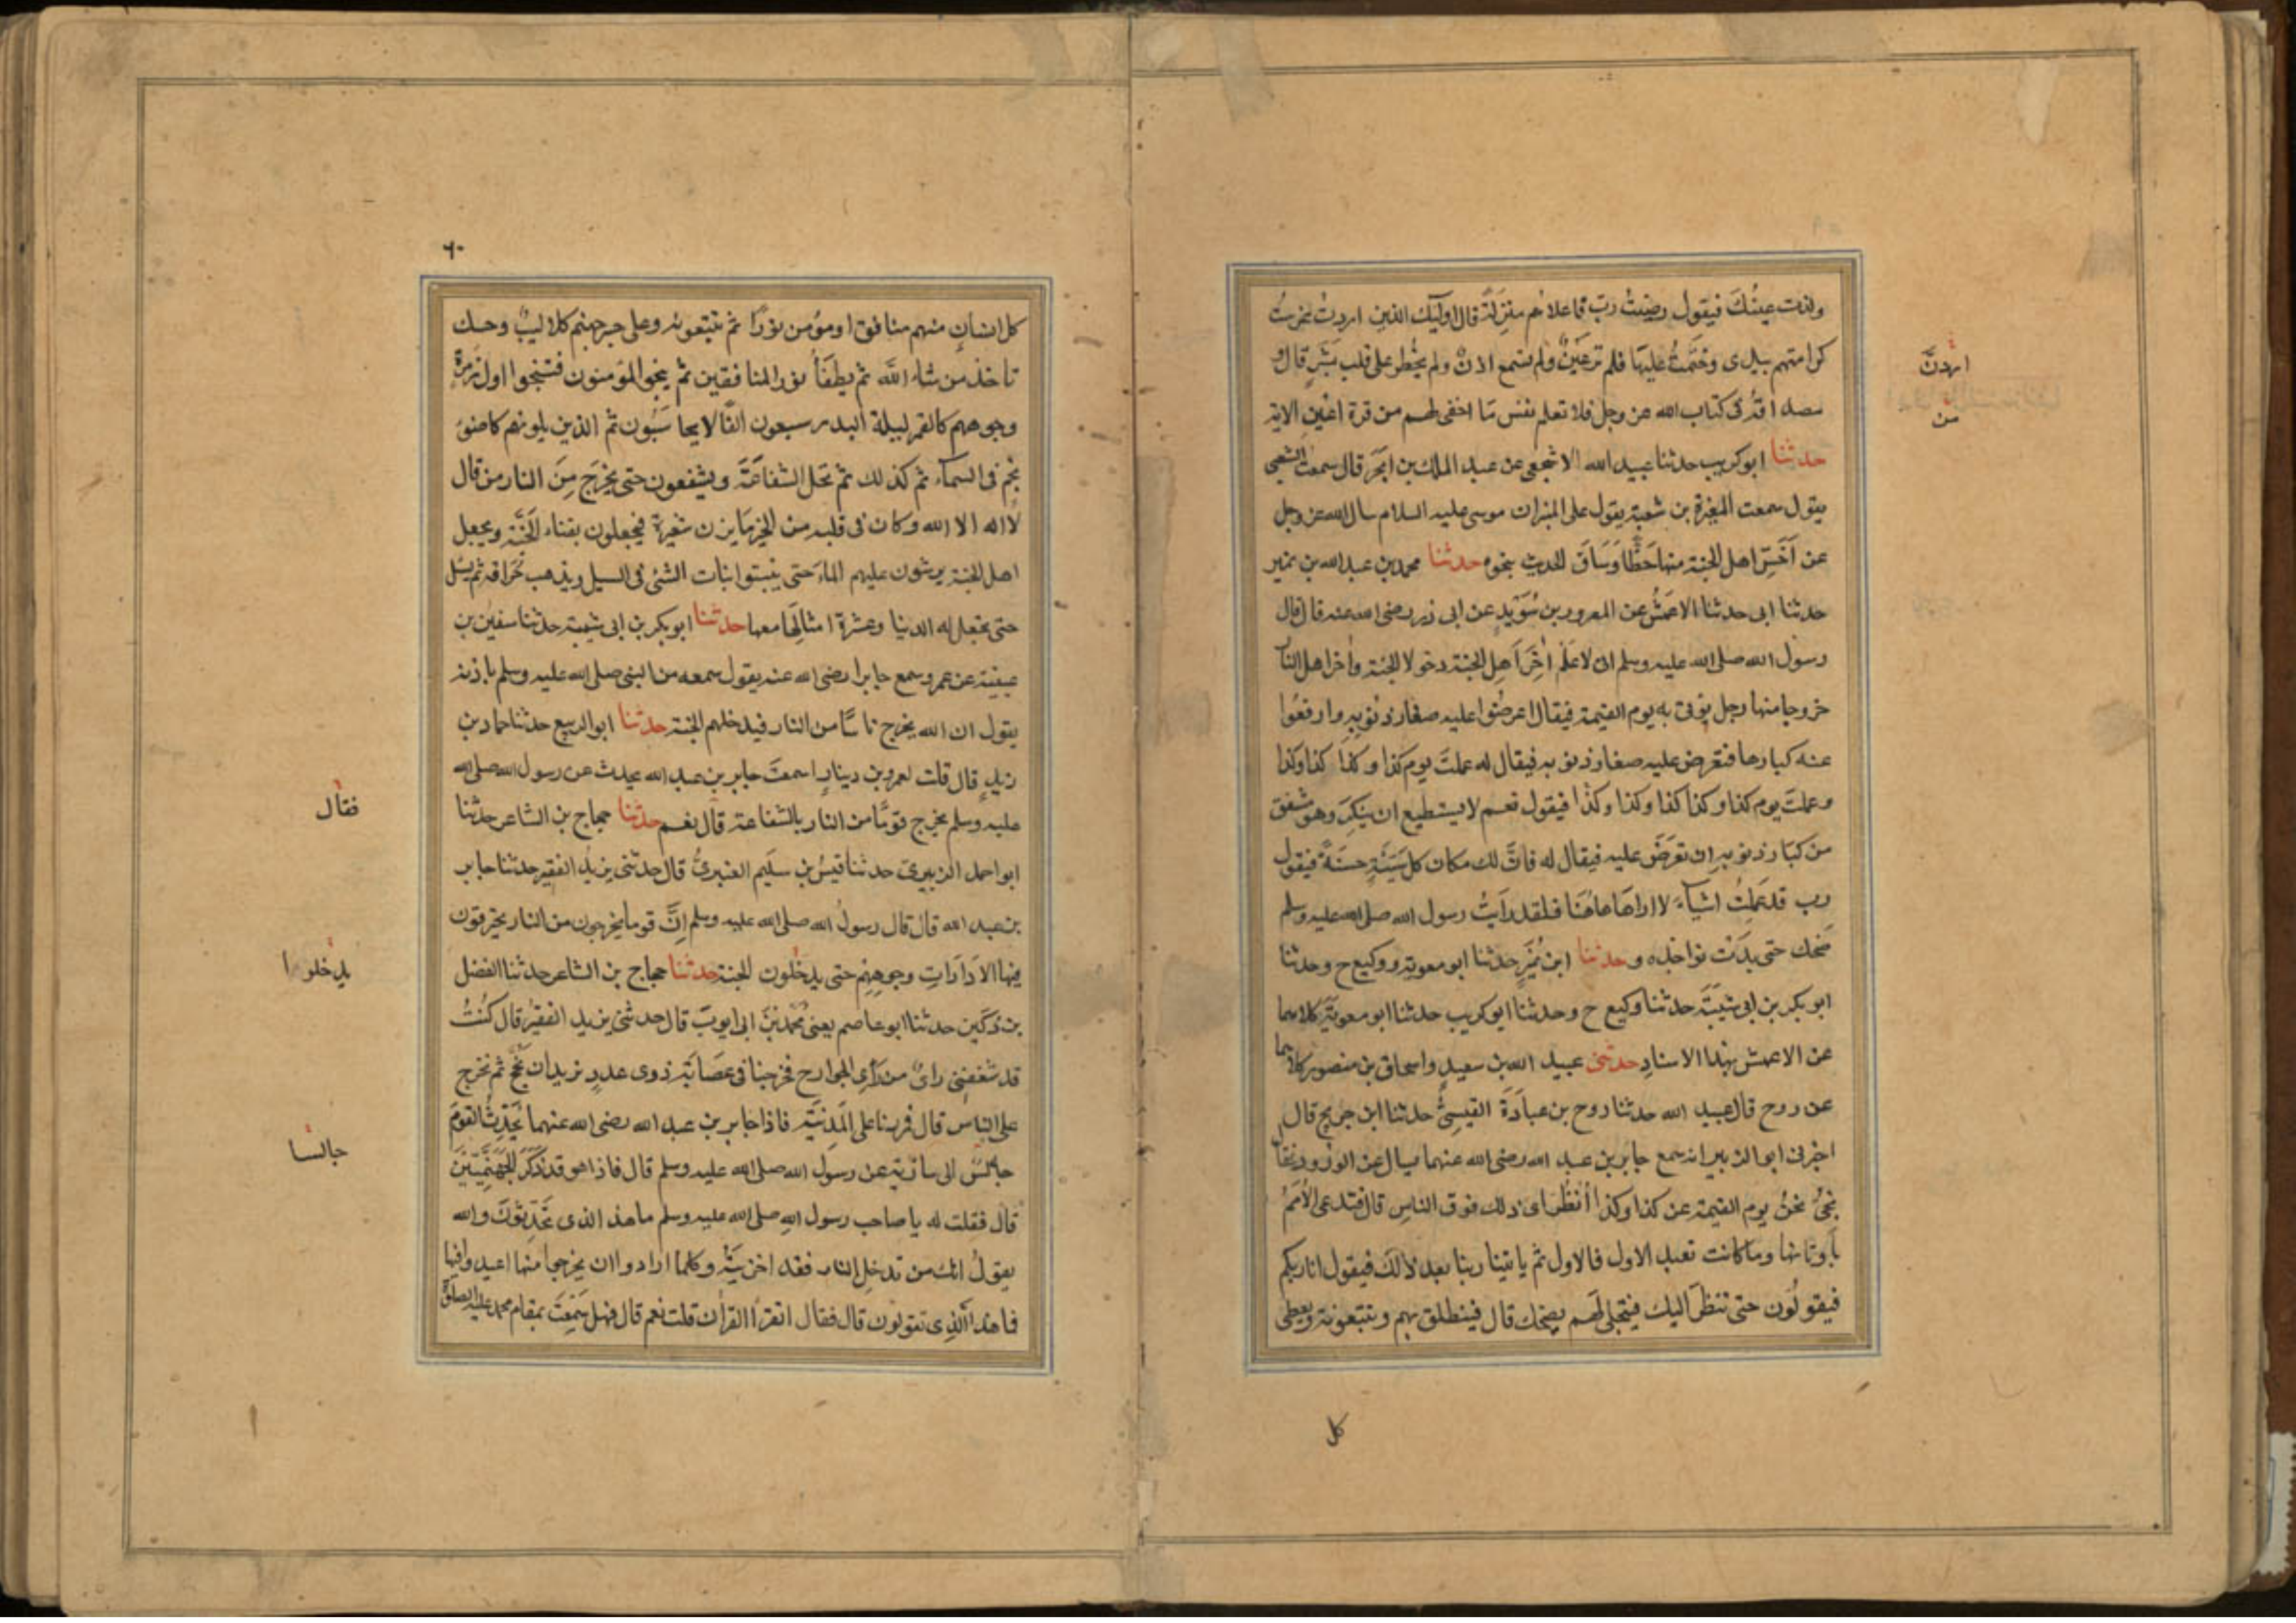 ولذت عينك فيقول رضيت رب قال فاعلاهم منزلة قال اوليك الذين اردت غرست
كرامتهم بيدى وختمت عليها فلم تر عين ولم تسمع اذن ولم يخطر على قلب بشر قال و
مصداقه فى كتاب الله عز وجل فلا تعلم نفس مّا اخفى لهم من قرة اعين الاية
حدثنا ابو كريب حدثنا عبيد الله الاشجعى عن عبد الملك بن ابجر قال سمعت الشعبى
يقول سمعت المغيرة بن شعبة يقول على المنبر ان موسى عليه السلام سال الله عز وجل
عن اخسّ اهل الجنة منها حظّا وساق الحديث بنحوه حدثنا محمد بن عبد الله بن نمير
حدثنا ابى حدثنا الاعمش عن المعرور بن سويد عن ابى ذر رضى الله عنه قال قال
رسول الله صلى الله عليه وسلم انى لاعلم اخر اهل الجنة دخولا الجنة واخر اهل النار
خروجا منها رجل يؤتى به يوم القيمة فيقال اعرضوا عليه صغار ذنوبه وارفعوا
عنه كبارها فتعرض عليه صغار ذنوبه فيقال له عملت يوم كذا وكذا كذا وكذا
وعملت يوم كذا وكذا كذا وكذا وكذا فيقول نعم لا يستطيع ان ينكر وهو مشفق
من كبار ذنوبه ان تعرض عليه فيقال له فانّ لك مكان كل سيئة حسنة فيقول
رب قد عملت اشياء لا اراها هاهنا فلقد رايت رسول الله صلى الله عليه وسلم
ضحك حتى بدت نواجذه وحدثنا ابن نمير حدثنا ابو معوية ووكيع ح وحدثنا
ابو بكر بن ابى شيبة حدثنا وكيع ح وحدثنا ابو كريب حدثنا ابو معوية كلاهما
عن الاعمش بهذا الاسناد حدثنى عبيد الله بن سعيد واسحاق بن منصور كلاهما
عن روح قال عبيد الله حدثنا روح بن عبادة القيسىّ حدثنا ابن جريج قال
اخبرنى ابو الزبير انه سمع جابر بن عبد الله رضى الله عنهما يسال عن الورود فقال
نجئ نحن يوم القيمة عن كذا وكذا انظر اى ذلك فوق الناس قال فتدعى الامم
باوثانها وما كانت تعبد الاول فالاول ثم ياتينا ربنا بعد ذلك فيقول انا ربكم
فيقولون حتى ننظر اليك فيتجلى لهم يضحك قال فينطلق بهم ويتبعونه ويعطى
اردتّ
من
كل
٦٠
كل انسان منهم منافق او مؤمن نورًا ثم يتبعونه وعلى جسر جهنم كلاليب وحسك
تاخذ من شاء الله ثم يطفأ نور المنافقين ثم ينجو المؤمنون فتنجوا اول زمرة
وجوههم كالقمر ليلة البدر سبعون الفًا لا يحاسبون ثم الذين يلونهم كاضوء
نجم فى السماء ثم كذلك ثم تحل الشفاعة ويشفعون حتى يخرج من النار من قال
لا اله الا الله وكان فى قلبه من الخير ما يزن شعيرة فيجعلون بفناء الجنة ويجعل
اهل الجنة يرشون عليهم الماء حتى ينبتوا نبات الشئ فى السيل ويذهب حراقه ثم يسل
حتى تجعل له الدنيا وعشرة امثالها معها حدثنا ابو بكر بن ابى شيبة حدثنا سفين بن
عيينة عن عمرو سمع جابرا رضى الله عنه يقول سمعه من النبى صلى الله عليه وسلم باذنه
يقول ان الله يخرج ناسًا من النار فيدخلهم الجنة حدثنا ابو الربيع حدثنا حماد بن
زيد قال قلت لعمرو بن دينار اسمعت جابر بن عبد الله يحدث عن رسول الله صلى الله
عليه وسلم يخرج قومًا من النار بالشفاعة قال نعم حدثنا حجاج بن الشاعر حدثنا
ابو احمد الزبيرى حدثنا قيس بن سليم العنبرى قال حدثنى يزيد الفقير حدثنا جابر
بن عبد الله قال قال رسول الله صلى الله عليه وسلم انّ قوما يخرجون من النار يحترقون
فيها الا دارات وجوههم حتى يدخلون الجنة حدثنا حجاج بن الشاعر حدثنا الفضل
بن دكين حدثنا ابو عاصم يعنى محمد بن ابى ايوب قال حدثنى يزيد الفقير قال كنت
قد شغفنى راى من راى الخوارج فخرجنا فى عصابة ذوى عدد نريد ان نحج ثم نخرج
على الناس قال فمررنا على المدينة فاذا جابر بن عبد الله رضى الله عنهما يحدث القوم
جالس الى سارية عن رسول الله صلى الله عليه وسلم قال فاذا هو قد ذكر الجهنميين
قال فقلت له يا صاحب رسول الله صلى الله عليه وسلم ماهذا الذى تحدثون والله
يقول انك من تدخل النار فقد اخزيته وكلما ارادوا ان يخرجوا منها اعيدوا فيها
فما هذا الذى تقولون قال فقال اتقرا القران قلت نعم قال فهل سمعت بمقام محمد عليه الصلوة
فقال
يدخلوا
جالسا